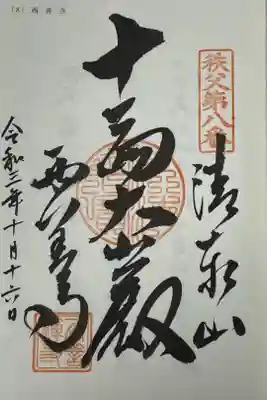 (8) 西善寺
秩父第八番
清泰山
十一面大
西善寺
令和三年十月十六日